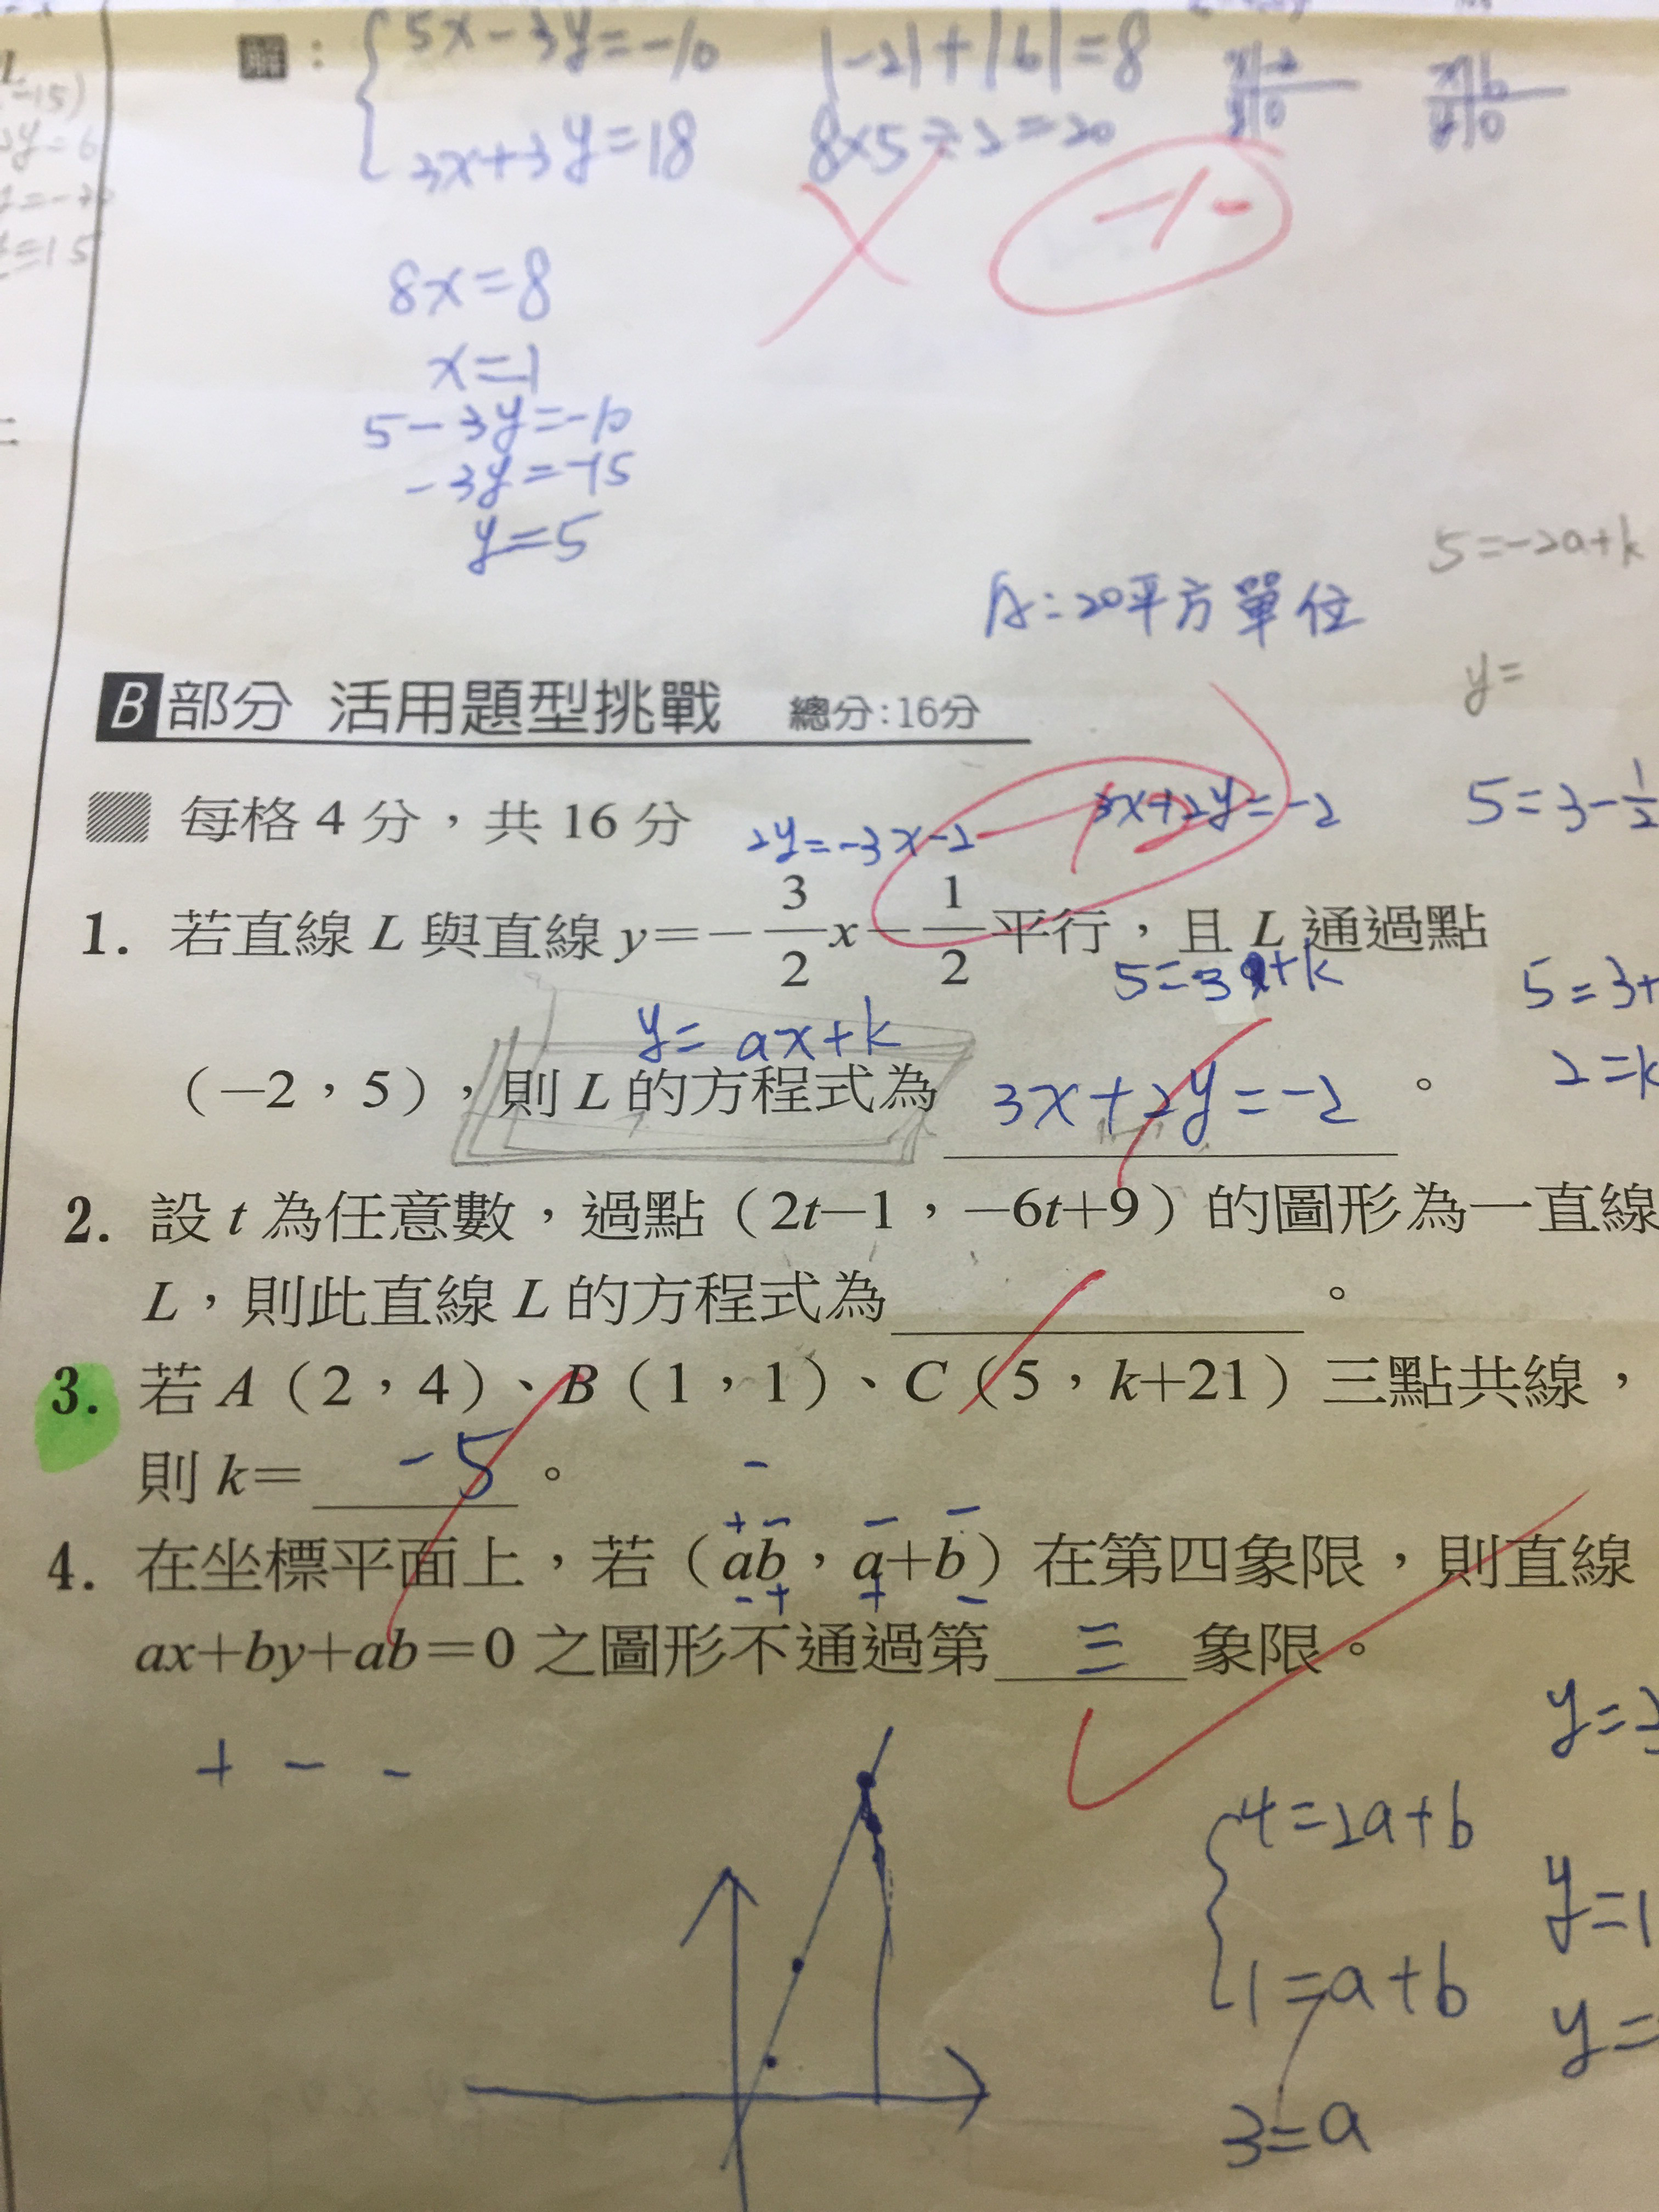 解：
5x-3y=-10
3x+3y=18
|-2|+|6|=8
8×5÷2=20
x|-2
y|0
x|6
y|0
8x=8
x=1
5-3y=-10
-3y=-15
y=5
A:20平方單位
5=-2a+k
y=
B部分 活用題型挑戰 總分:16分
每格 4 分，共 16 分
2y=-3x-2
3x+2y=-2
5=3-1/2
1. 若直線 L 與直線 y=-3/2x-1/2平行，且 L 通過點
y=ax+k
5=3+
2=k
(-2，5)，則 L 的方程式為 3x+2y=-2 。
2. 設 t 為任意數，過點 (2t-1，-6t+9) 的圖形為一直線
L，則此直線 L 的方程式為 。
3. 若 A (2，4)、B (1，1)、C (5，k+21) 三點共線，
則 k= -5 。
4. 在坐標平面上，若 (ab，a+b) 在第四象限，則直線
ax+by+ab=0 之圖形不通過第 三 象限。
+ - -
4=2a+b
1=a+b
3=a
y=1
y=